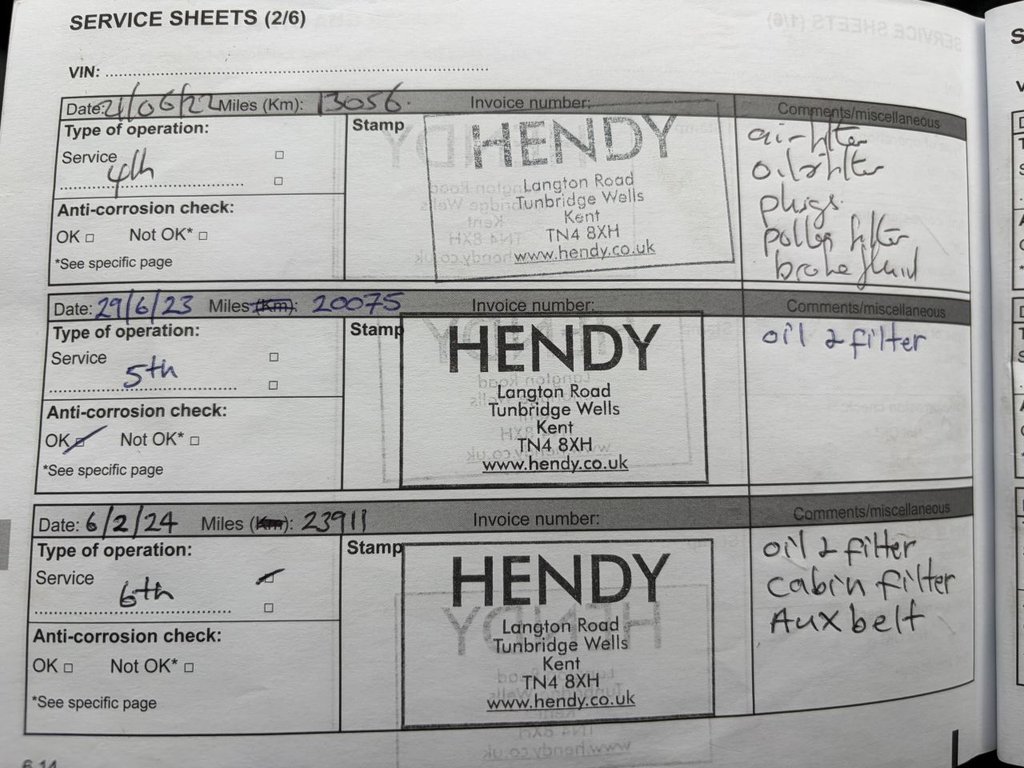 SERVICE SHEETS (2/6)
VIN:
Date: 21/06/22 Miles (Km): 13056. Invoice number: Comments/miscellaneous
Type of operation:
Service
4th
Anti-corrosion check:
OK Not OK*
*See specific page
Stamp
HENDY
Langton Road
Tunbridge Wells
Kent
TN4 8XH
www.hendy.co.uk
air filter
oil & filter
plugs
pollen filter
brake fluid
Date: 29/6/23 Miles (Km): 20075 Invoice number: Comments/miscellaneous
Type of operation:
Service
5th
Anti-corrosion check:
OK Not OK*
*See specific page
Stamp
HENDY
Langton Road
Tunbridge Wells
Kent
TN4 8XH
www.hendy.co.uk
oil & filter
Date: 6/2/24 Miles (Km): 23911 Invoice number: Comments/miscellaneous
Type of operation:
Service
6th
Anti-corrosion check:
OK Not OK*
*See specific page
Stamp
HENDY
Langton Road
Tunbridge Wells
Kent
TN4 8XH
www.hendy.co.uk
oil & filter
cabin filter
Aux belt
6.14